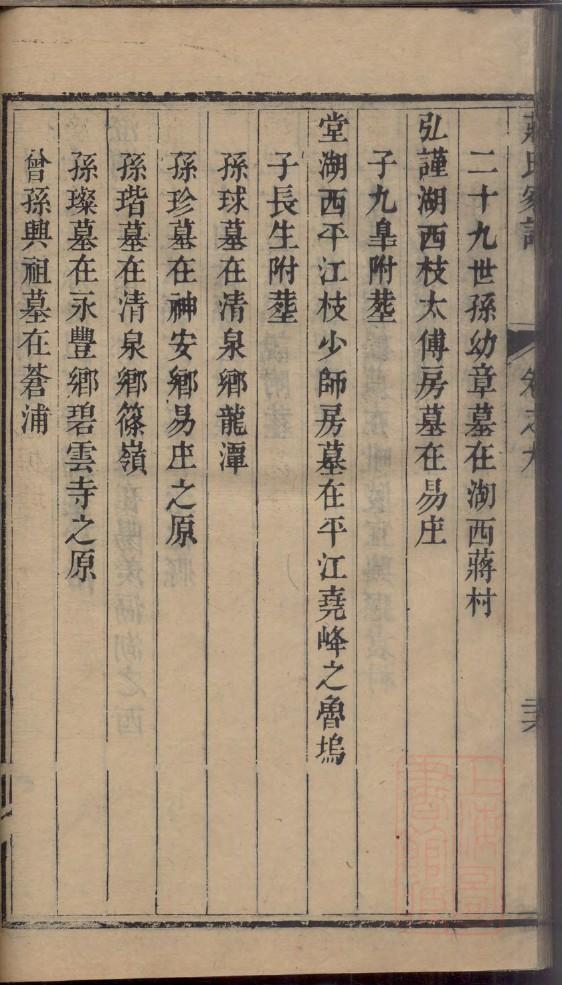 蔣氏家譜 卷之九
二十九世孫幼章墓在湖西蔣村
弘謹湖西枝太傅房墓在易庄
子九臯附塟
堂湖西平江枝少師房墓在平江堯峰之魯塢
子長生附塟
孫球墓在清泉鄉龍潭
孫珍墓在神安鄉易庄之原
孫瑎墓在清泉鄉篠嶺
孫璨墓在永豐鄉碧雲寺之原
曾孫興祖墓在蒼浦